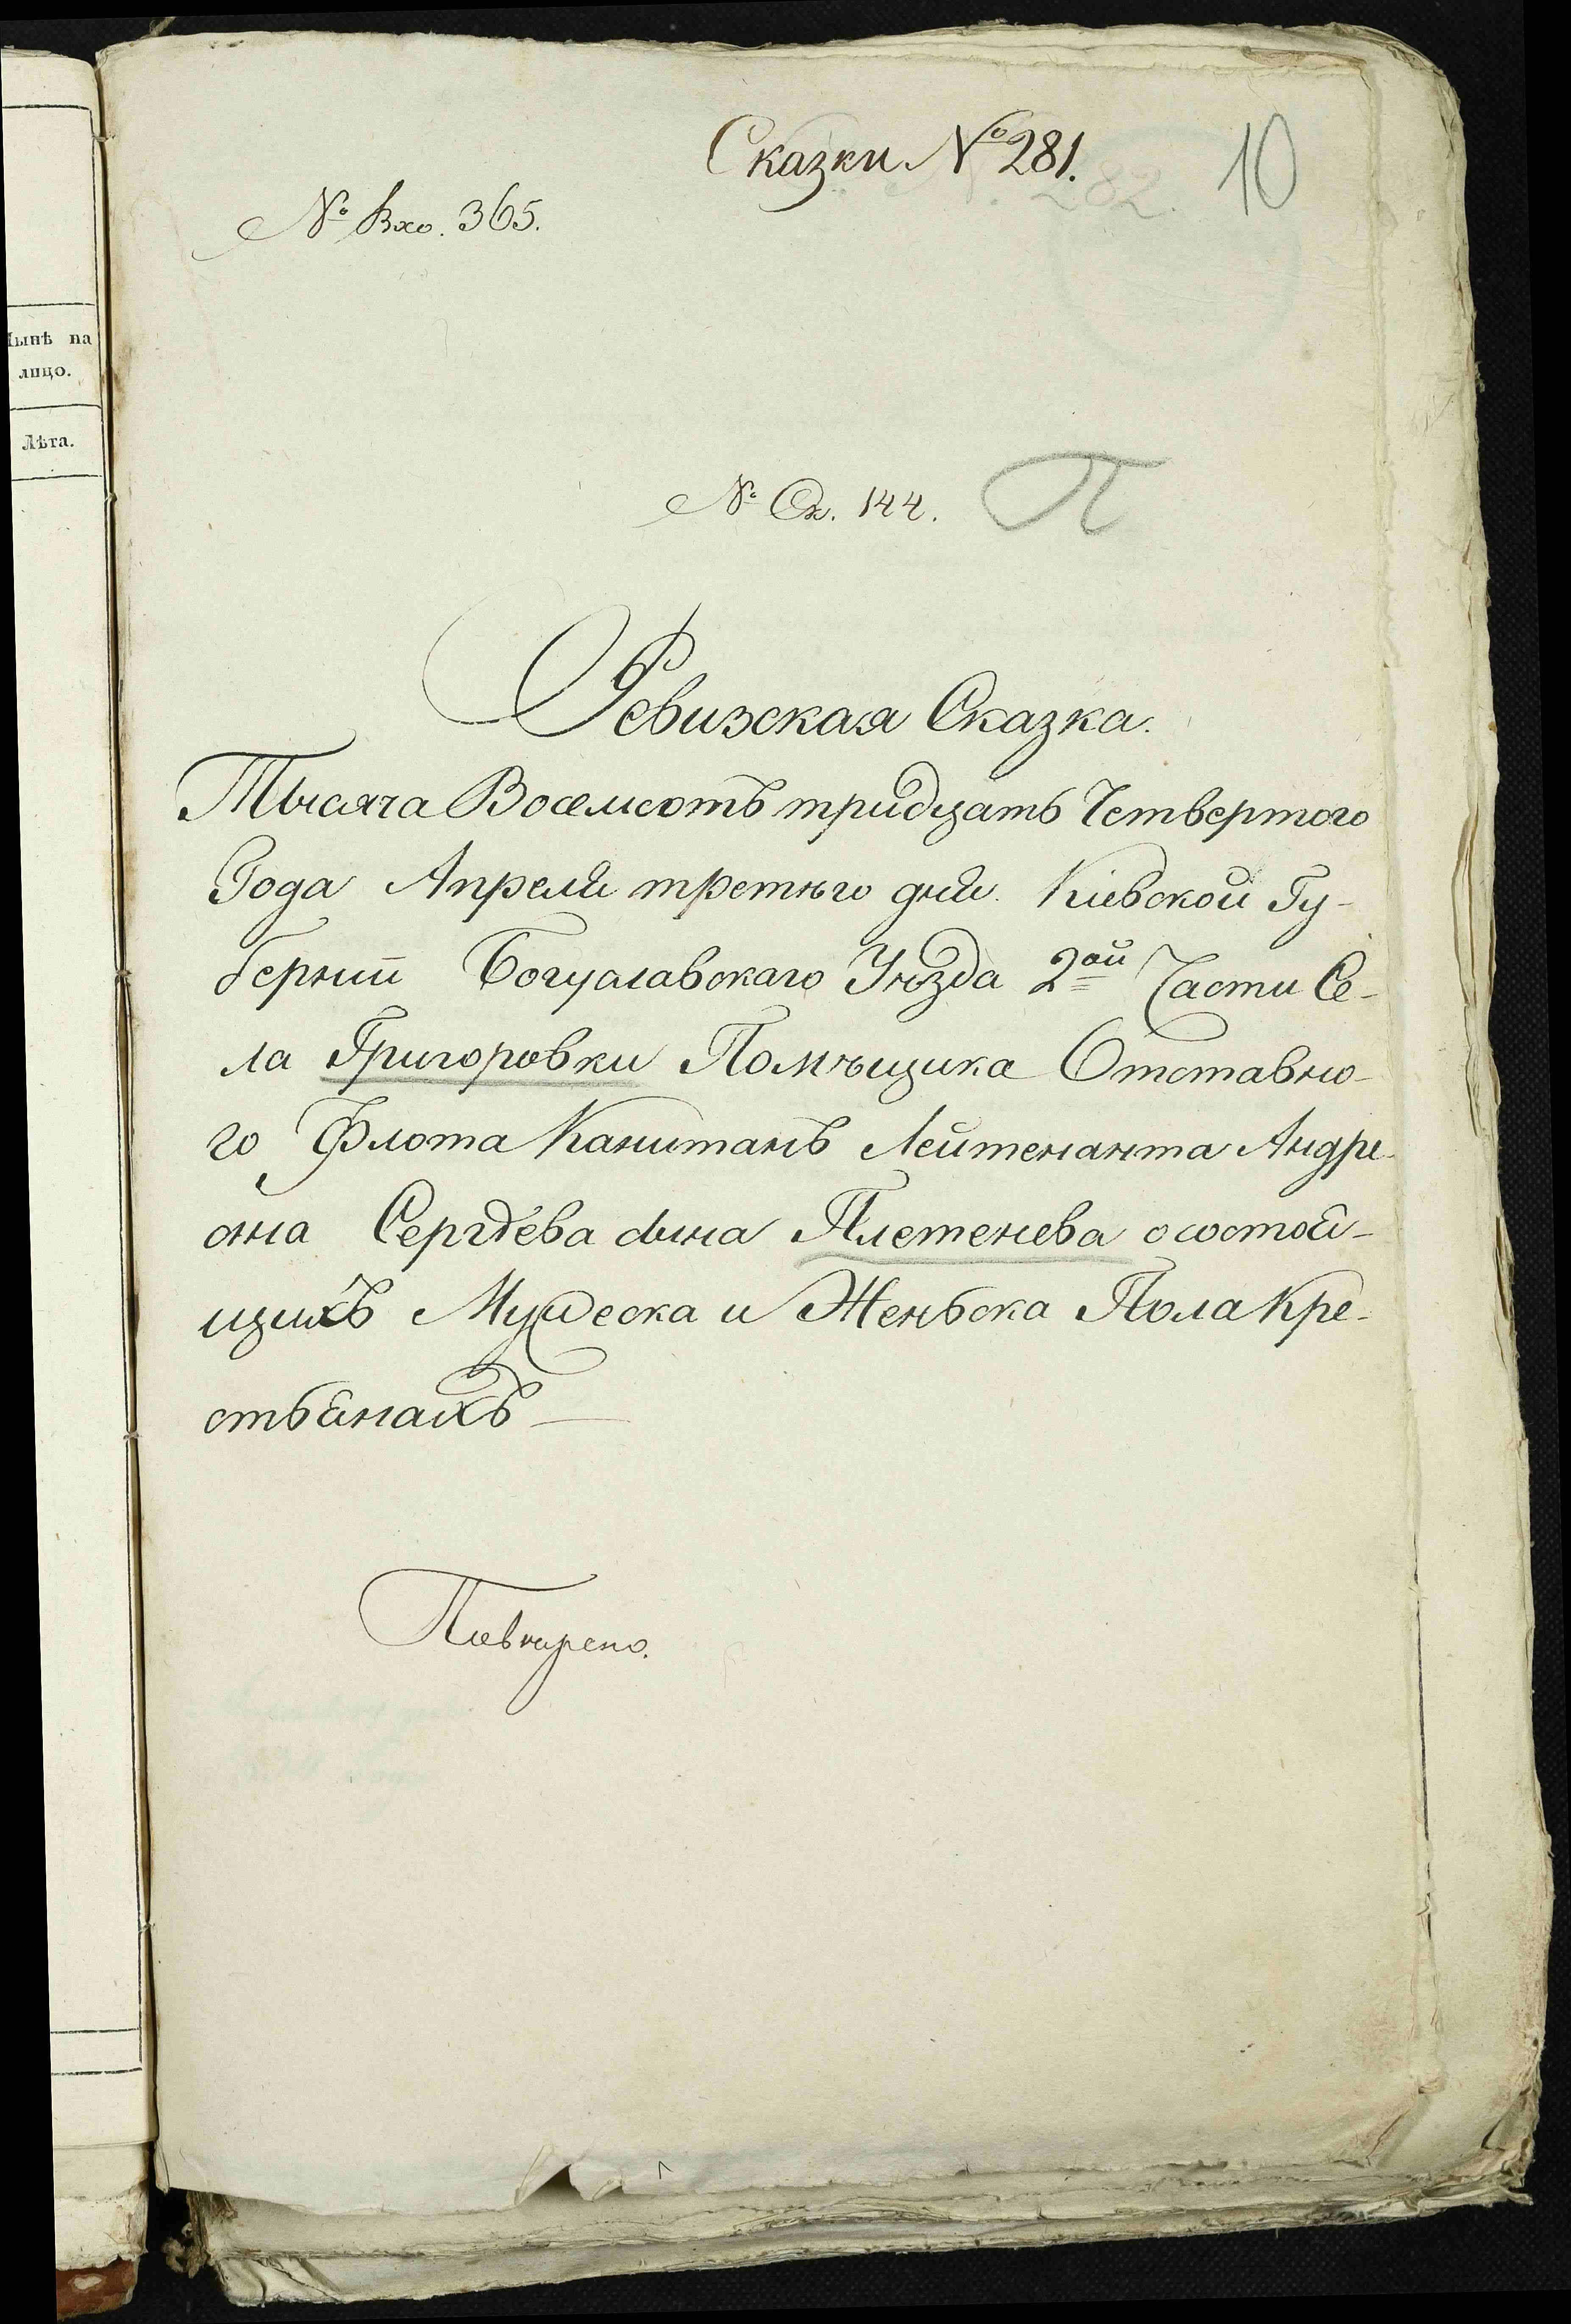 Сказки № 281.
10
№ Вхо. 365.
Нынѣ на
лицо.
Лѣта.
№ Ск. 144.
П
Ревизская Сказка.
Тысяча Восемсотъ тридцать Четвертого
Года Апреля третяго дня. Кіевской Гу-
бернии Богуславскаго Уѣзда 2ой Части Се-
ла Григоровки Помѣщика Отставно-
го Флота Капитанъ Лейтенанта Андре-
яна Сергѣева сына Плетенева о состоя-
щихъ Мужеска и Женьска Пола Кре-
стьянахъ